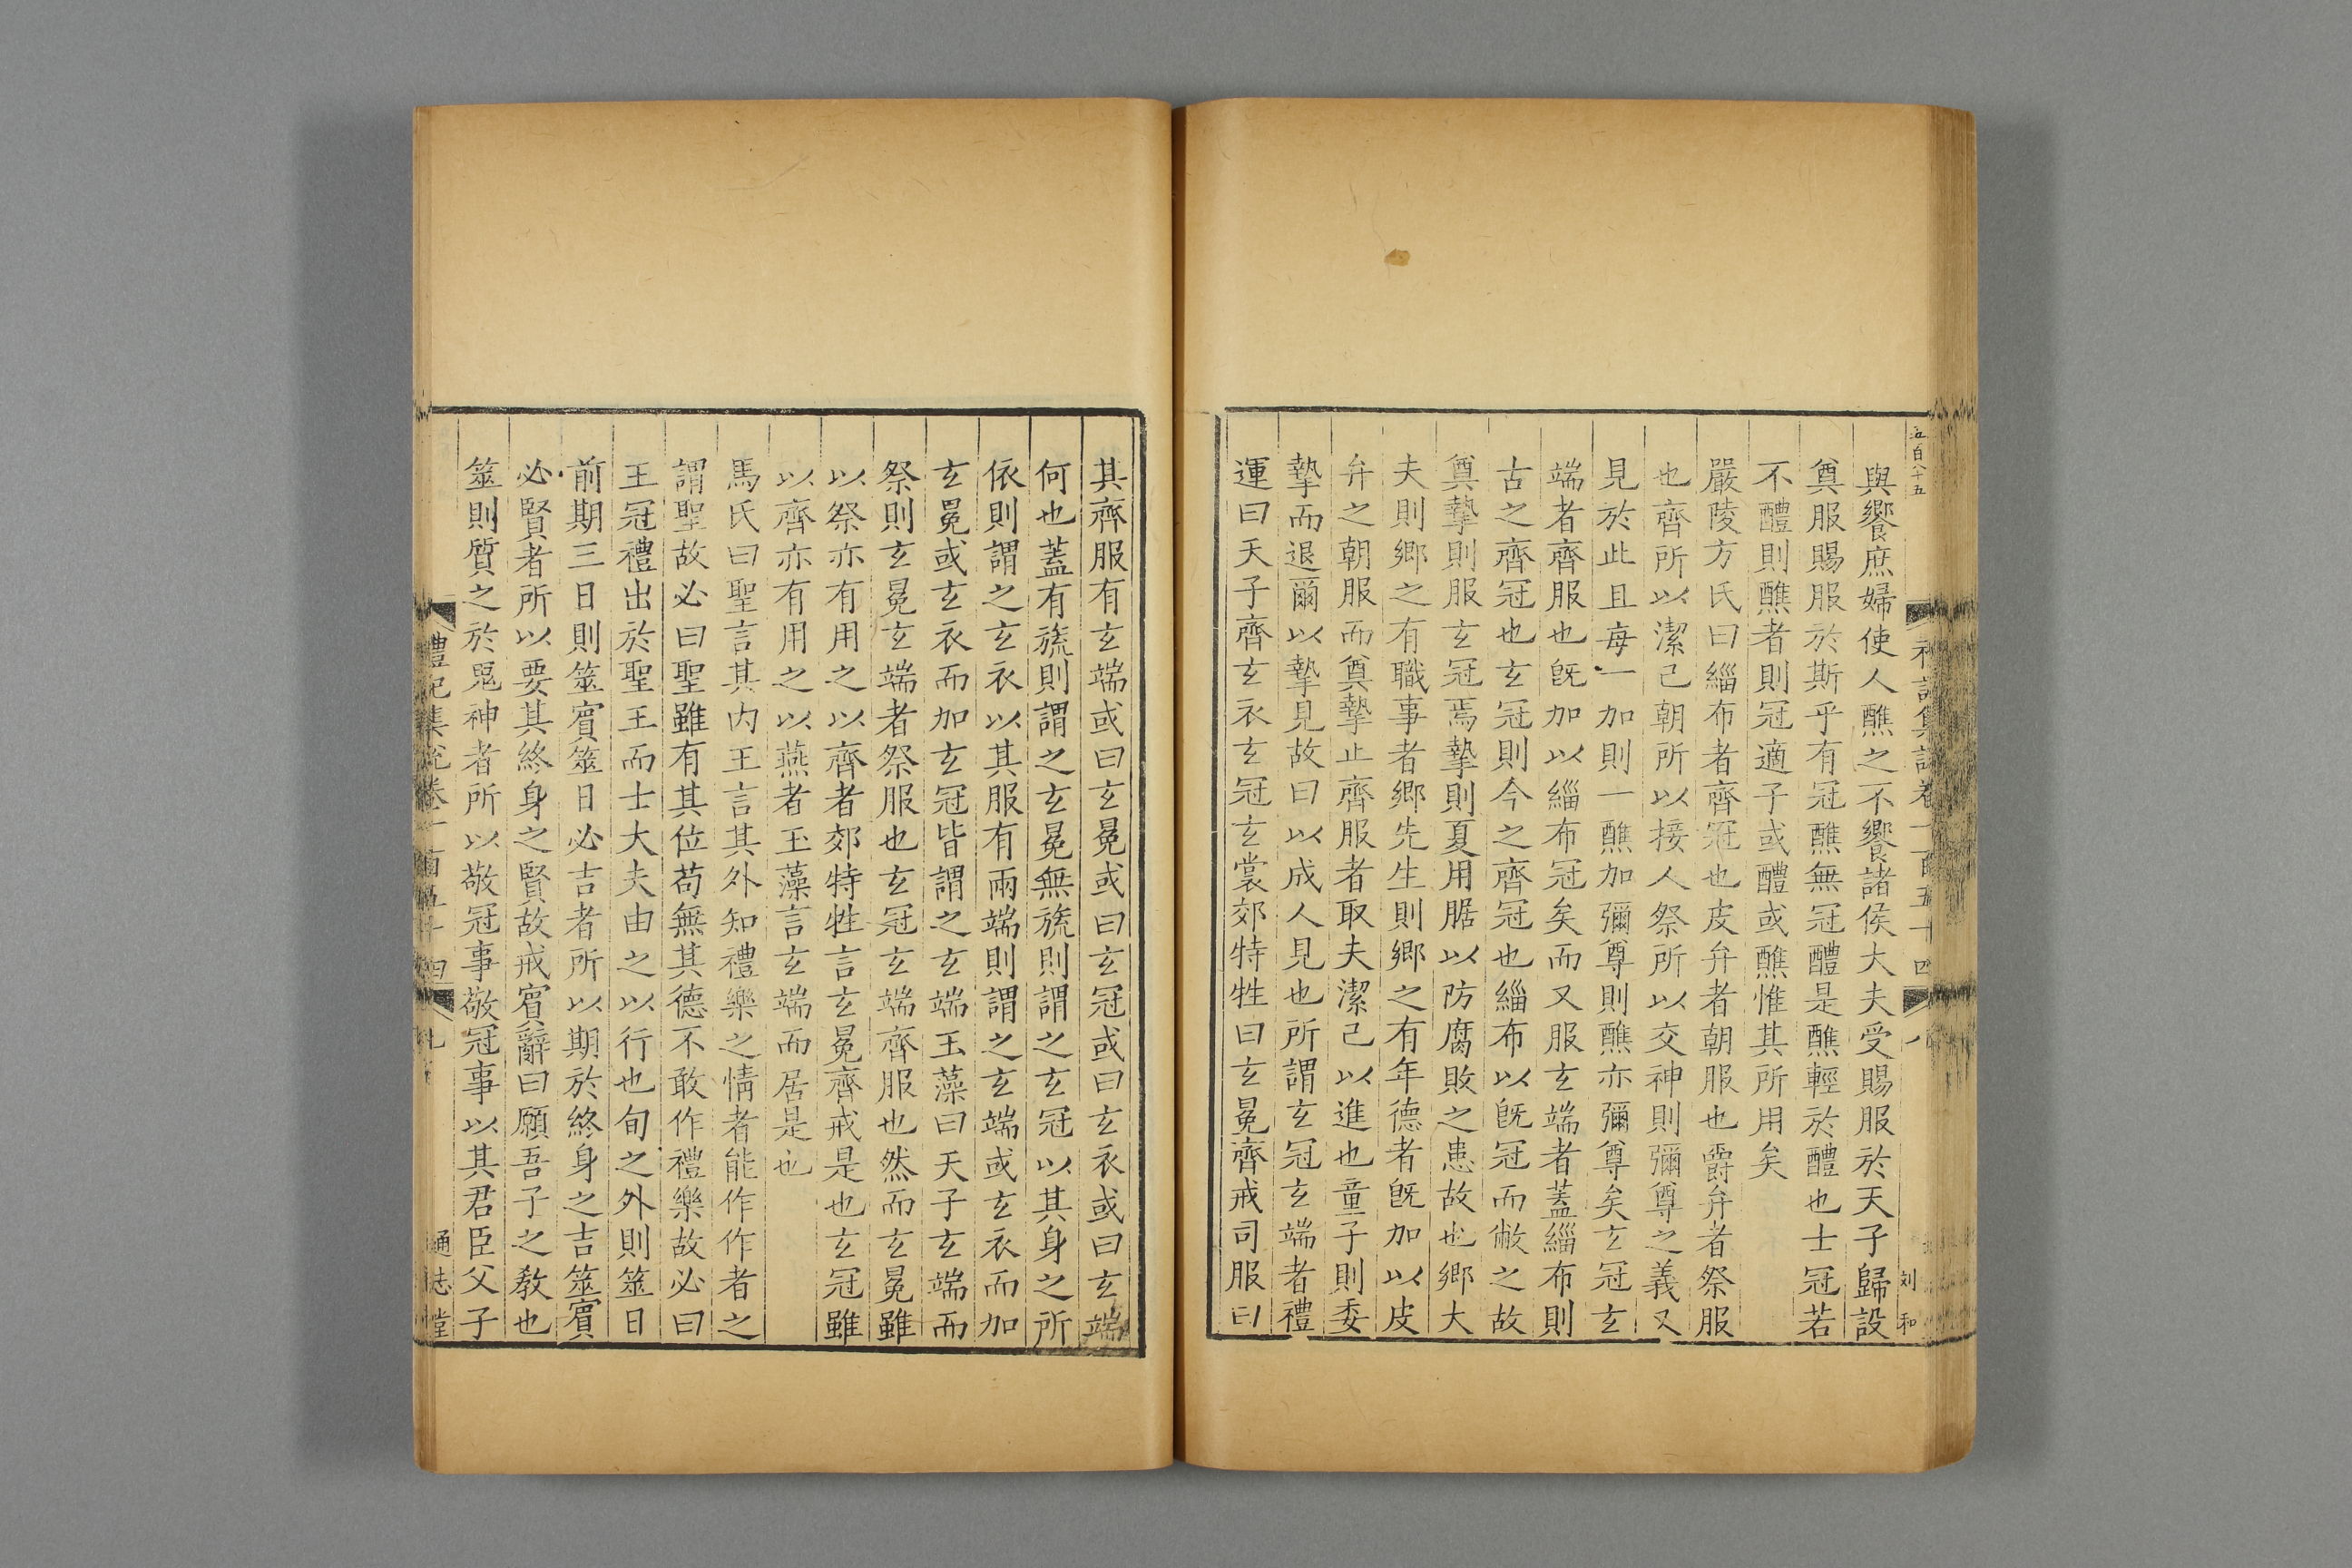 五百八十五
禮記集說卷一百五十四
八
刘和
與饗庶婦使人醮之不饗諸侯大夫受賜服於天子歸設
奠服賜服於斯乎有冠醮無冠醴是醮輕於醴也士冠若
不醴則醮者則冠適子或醴或醮惟其所用矣
嚴陵方氏曰緇布者齊冠也皮弁者朝服也爵弁者祭服
也齊所以潔己朝所以接人祭所以交神則彌尊之義又
見於此且每一加則一醮加彌尊則醮亦彌尊矣玄冠玄
端者齊服也旣加以緇布冠矣而又服玄端者蓋緇布則
古之齊冠也玄冠則今之齊冠也緇布以旣冠而敝之故
奠摯則服玄冠焉摯則夏用腒以防腐敗之患故也鄉大
夫則鄉之有職事者鄉先生則鄉之有年德者旣加以皮
弁之朝服而奠摯止齊服者取夫潔己以進也童子則委
摯而退爾以摯見故曰以成人見也所謂玄冠玄端者禮
運曰天子齊玄衣玄冠玄裳郊特牲曰玄冕齊戒司服曰
其齊服有玄端或曰玄冕或曰玄冠或曰玄衣或曰玄端
何也蓋有旒則謂之玄冕無旒則謂之玄冠以其身之所
依則謂之玄衣以其服有兩端則謂之玄端或玄衣而加
玄冕或玄衣而加玄冠皆謂之玄端玉藻曰天子玄端而
祭則玄冕玄端者祭服也玄冠玄端齊服也然而玄冕雖
以祭亦有用之以齊者郊特牲言玄冕齊戒是也玄冠雖
以齊亦有用之以燕者玉藻言玄端而居是也
馬氏曰聖言其内王言其外知禮樂之情者能作作者之
謂聖故必曰聖雖有其位苟無其德不敢作禮樂故必曰
王冠禮出於聖王而士大夫由之以行也旬之外則筮日
前期三日則筮賓筮日必吉者所以期於終身之吉筮賓
必賢者所以要其終身之賢故戒賓辭曰願吾子之敎也
筮則質之於鬼神者所以敬冠事敬冠事以其君臣父子
禮記集說卷一百五十四
九
通志堂